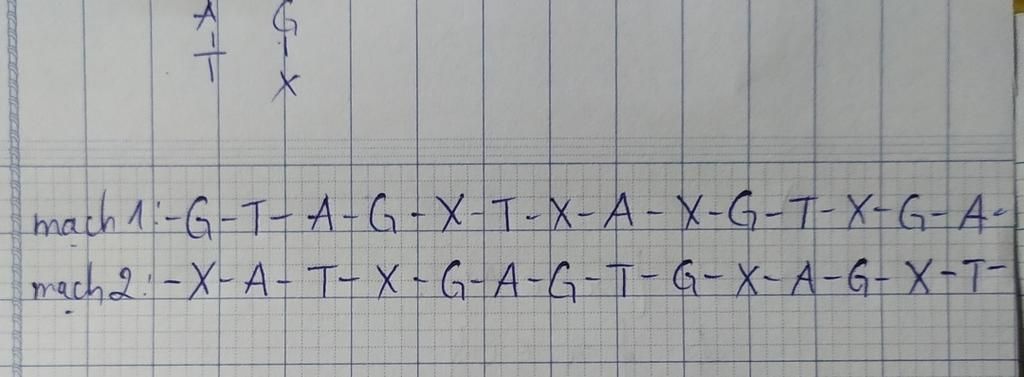 A G
| |
T X
mạch 1: -G-T-A-G-X-T-X-A-X-G-T-X-G-A-
mạch 2: -X-A-T-X-G-A-G-T-G-X-A-G-X-T-